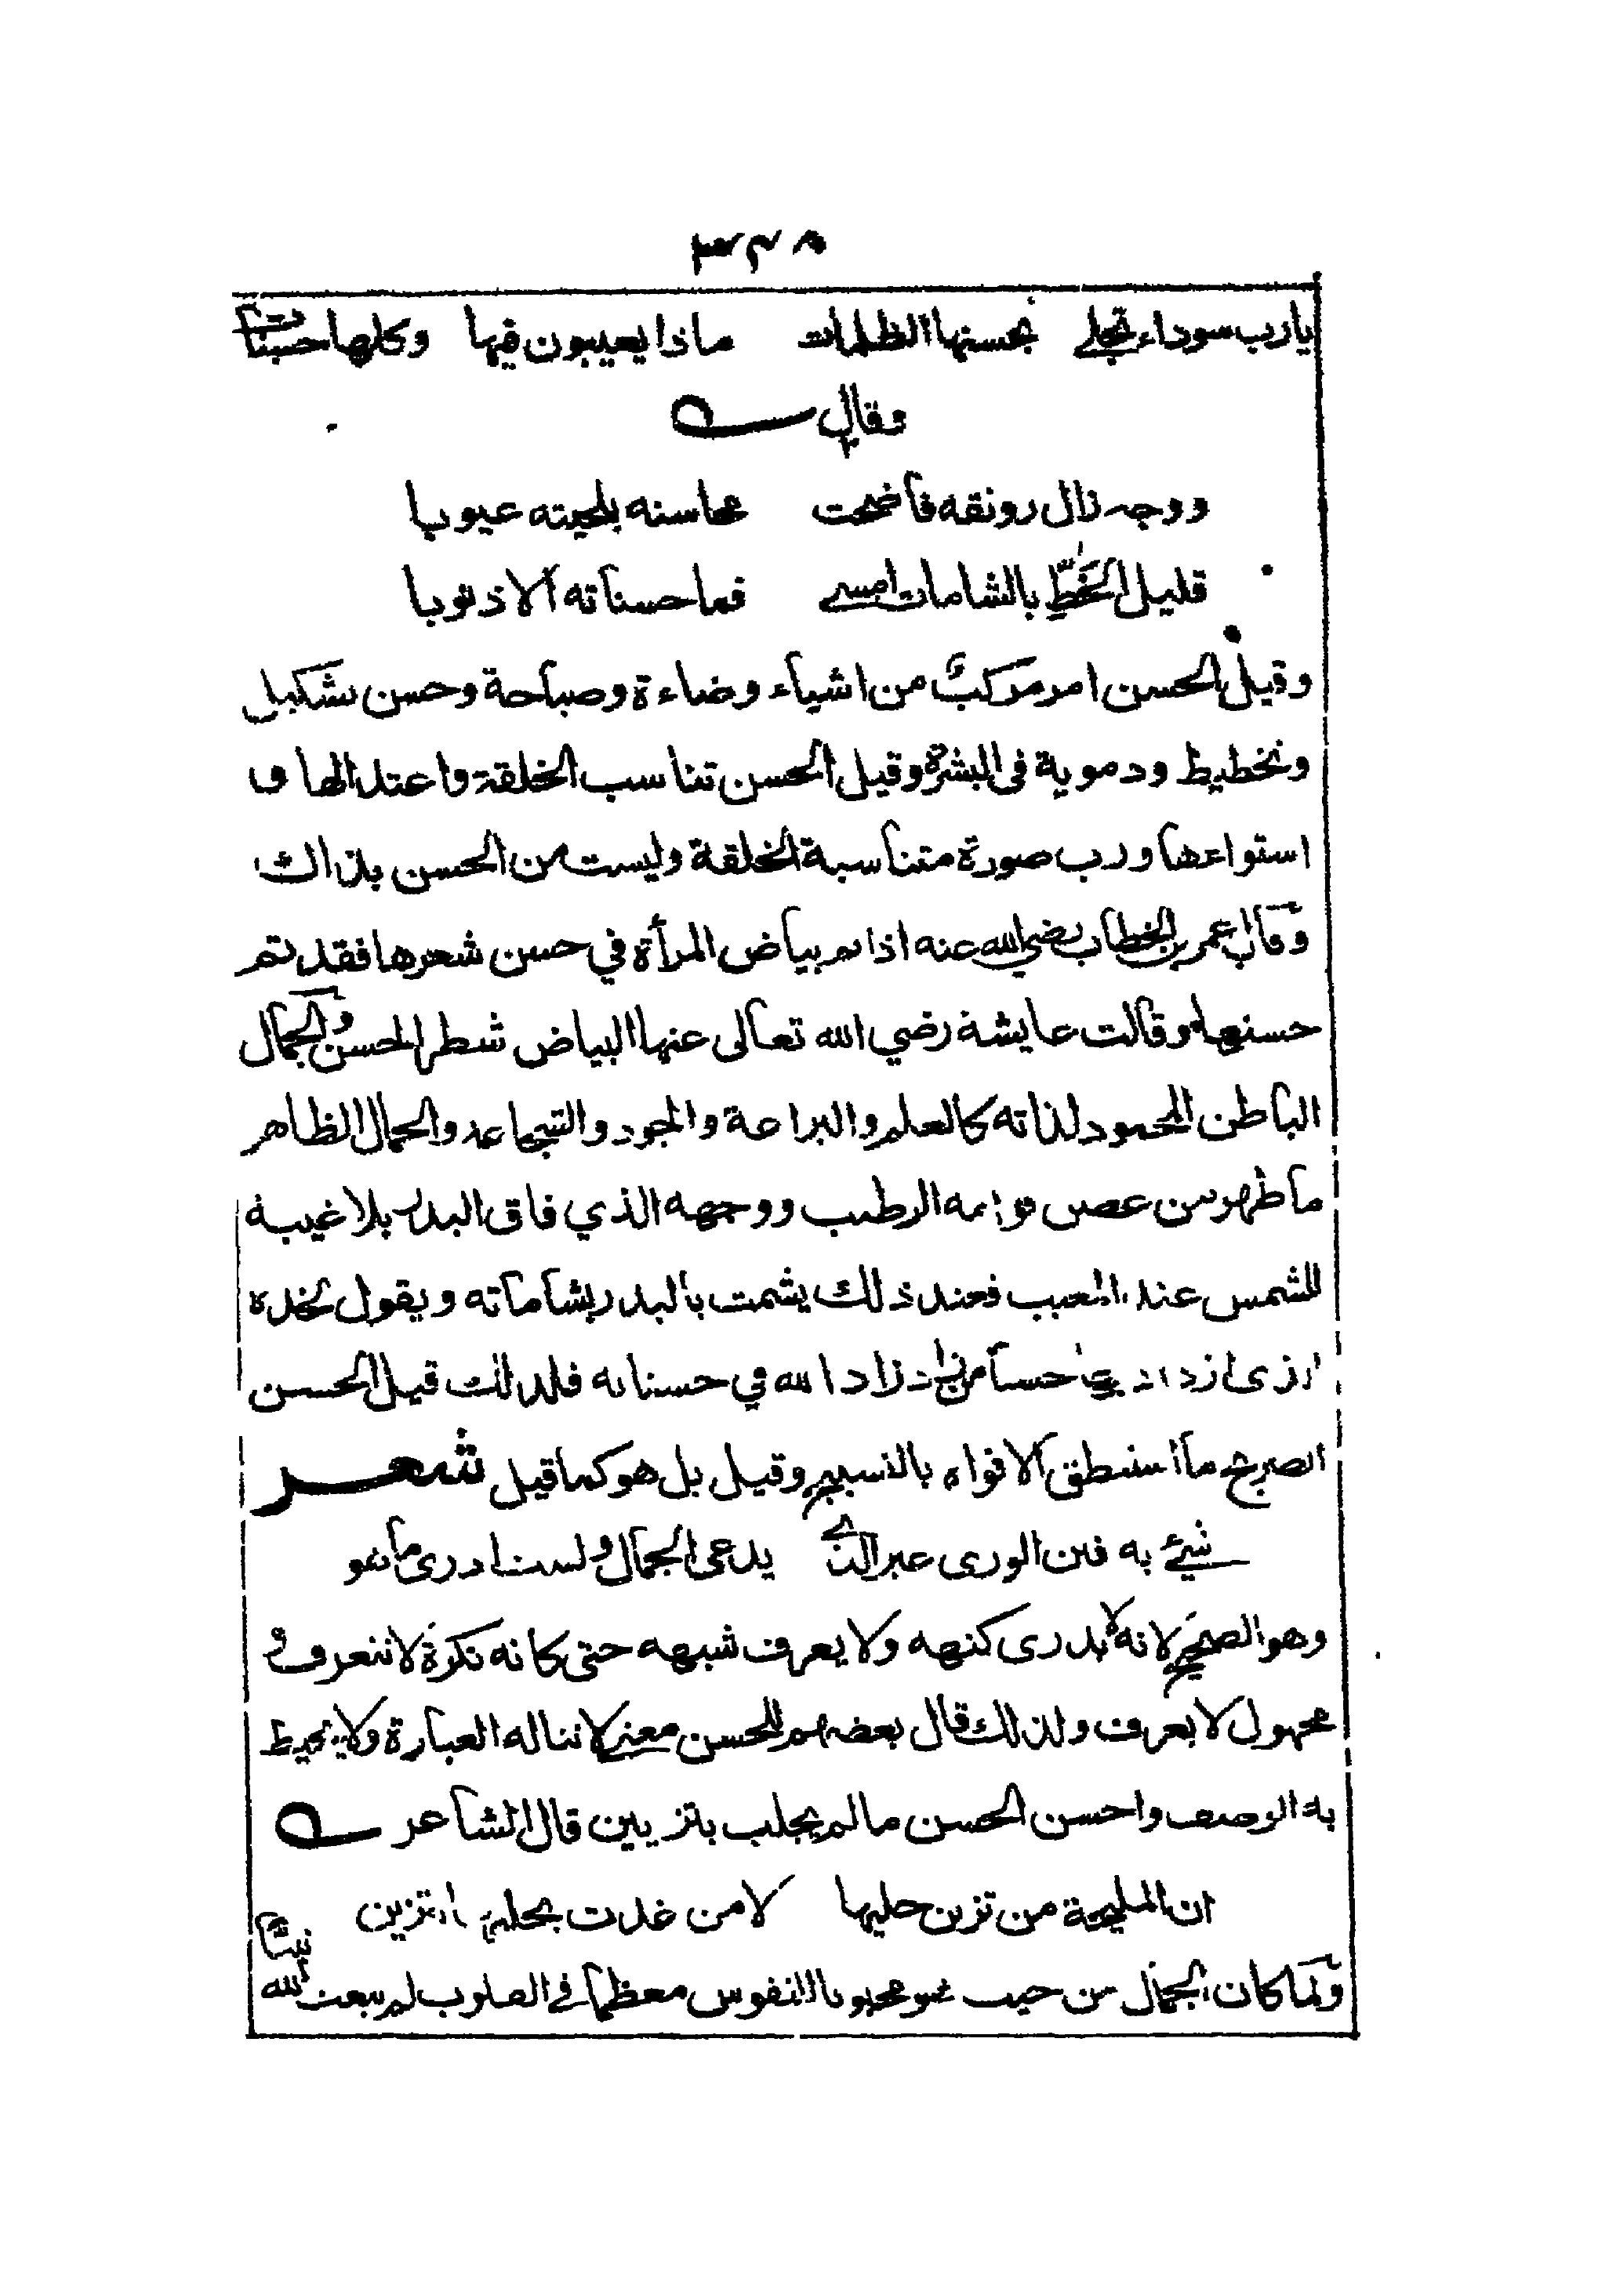 ٣٤٨
يا رب سوداء تجلى بحسنها الظلمات ماذا يعيبون فيها وكلها حسنات
وقال
ووجه زال رونقه فأضحت محاسنه بلحيته عيوبا
قليل الخطّ بالشامات امسى فما حسناته الا ذنوبا
وقيل الحسن امر مركبٌ من اشياء وضاءة وصباحة وحسن تشكيل
وتخطيط ودموية في البشرة وقيل الحسن تناسب الخلقة واعتدالها و
استواءها ورب صورة متناسبة الخلقة وليست من الحسن بذاك
وقال عمر بن الخطاب رضي الله عنه اذا تم بياض المرأة في حسن شعرها فقد تم
حسنها وقالت عايشة رضي الله تعالى عنها البياض شطر الحسن والجمال
الباطن المحمود لذاته كالعلم والبراعة والجود والشجاعة والجمال الظاهر
ما ظهر من غصن قوامه الرطيب ووجهه الذي فاق البدر بلا غيبة
للشمس عند المغيب فعند ذلك يشمت بالبدر بشاماته ويقول لخده
حسنا زاد الله في حسناته فلذلك قيل الحسن
الصريح ما استنطق الافواه بالتسبيح وقيل بل هو كما قيل شعر
شيئ به فتن الورى غير الذي يدعى الجمال ولست ادرى ما هو
وهو الصحيح لانه لا يدرى كنهه ولا يعرف شبهه حتى كانه نكرة لا تتعرف و
مجهول لا يعرف ولذلك قال بعضهم للحسن معنى لا تناله العبارة ولا يحيط
به الوصف واحسن الحسن ما لم يجلب بتزيين قال الشاعر
ان المليحة من تزين حليها لا من غدت بحليها تتزين
ولما كان الجمال من حيث هو محبوبا للنفوس معظما في القلوب لم يبعث الله نبيّا